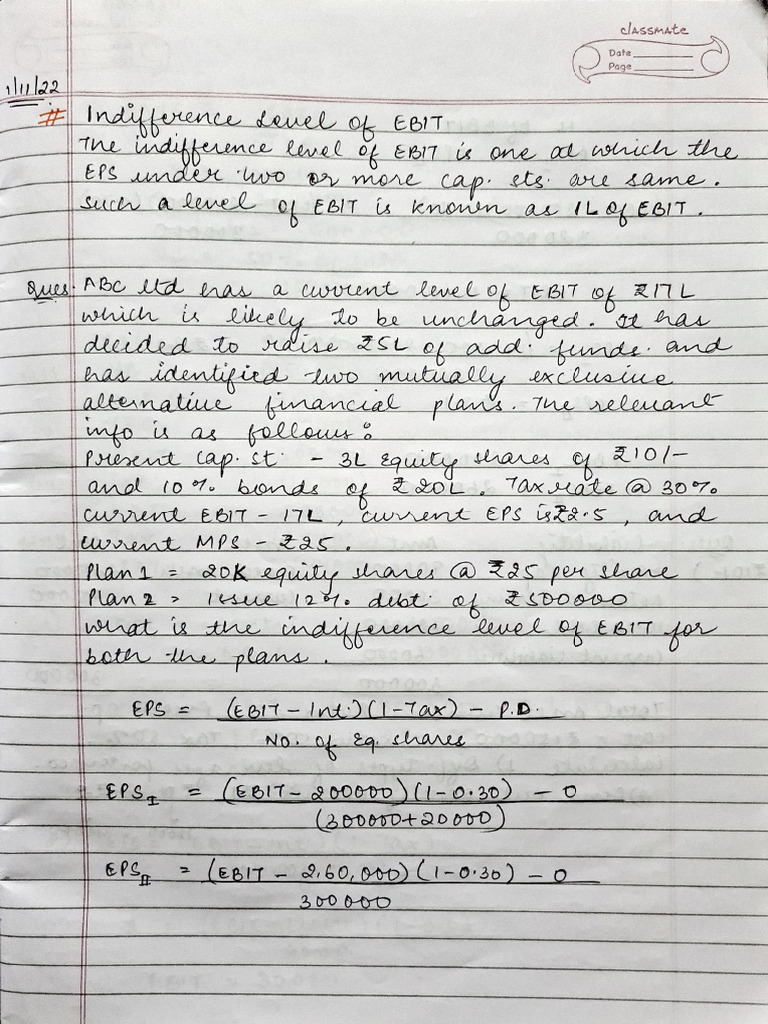 classmate
Date
Page
1/11/22
# Indifference Level of EBIT
The indifference level of EBIT is one at which the
EPS under two or more cap. sts. are same.
Such a level of EBIT is known as IL of EBIT.
Ques. ABC ltd has a current level of EBIT of ₹17L
which is likely to be unchanged. It has
decided to raise ₹5L of add. funds. and
has identified two mutually exclusive
alternative financial plans. The relevant
info is as follows:
Present cap. st. - 3L equity shares of ₹10/-
and 10% bonds of ₹20L. Tax rate @ 30%
current EBIT - 17L, current EPS is ₹2.5, and
current MPS - ₹25.
Plan 1 = 20K equity shares @ ₹25 per share
Plan 2 = Issue 12% debt. of ₹500000
What is the indifference level of EBIT for
both the plans.
EPS = (EBIT - Int.)(1-Tax) - P.D.
No. of Eq. shares
EPS_I = (EBIT - 200000)(1-0.30) - 0
(300000+20000)
EPS_II = (EBIT - 2,60,000)(1-0.30) - 0
300000